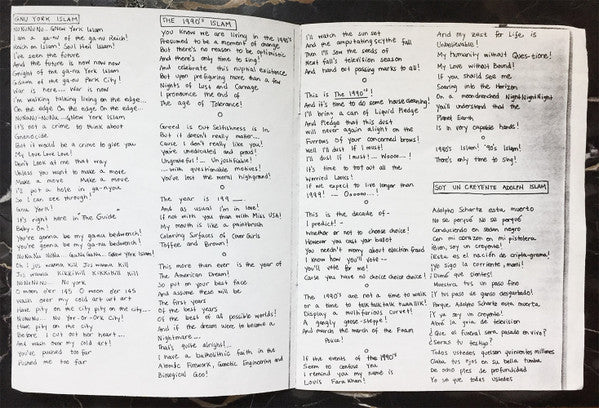 GNU YORK ISLAM
NuNuNu.. GNew York Islam
Reich on Islam! Soul Heil Islam!
I've seen the future
And the future is now now now
Origins of the ga-nu Islam
Islam of the ga-nu Park City!
War is here... War is now
I'm walking talking living on the edge...
On the edge On the edge On the edge...
NuNuNu-NuNu.. GNew York Islam
It's not a crime to think about
Gnocide
But it would be a crime to give you
My Love Love Love!
Don't look at me that way
Unless you want to make a move
Make a move Make a move
I'll put a hole in ga-nyou
So I can see through!
Gnu York!
It's right here in The Guide
Baby-Bn!
You're gonna be my ga-nu bedwench!
You're gonna be my ga-nu bedwench!
Oh I jis wanna kill Jis wanna Kill
Jis wanna KikkiKill KikkiKill Kill
NuNuNuNu.. Nu York
O meen older 165 O meen older 165
Walk over my cold art art art
Have pity on the city pity on the city...
Have pity on the city
Before I cut out her heart...
And walk over my cold art!
You've pushed too far
Pushed me too far
THE 1990's ISLAM
You know we are living in the 1990's
Presumed to be a moment of change
But there's no reason to be optimistic
And there's only time to sing!
And celebrate this nuptial existence
But upon prefiguring more than a few
Nights of Loss and Carnage
I pronounce the end of
The age of Tolerance!
O
Greed is Out Selfishness is In
But it doesn't really matter..
Cause I don't really like you!
You're uneducated and proud!
Ungrateful!... Unjustifiable!
...With questionable motives!
You've lost the moral highground!
O
The year is 199__.
And as usual I'm in love!
If not with you than with Miss USA!
My mouth is like a paintbrush
Coloring Surfaces of Cover Girls
Toffee and Brown!
O
This more than ever is the year of
The American Dream!
So put on your best face
And assume these will be
The first years
Of the best years
Of the best of all possible worlds!
And if the dream were to become a
Nightmare...
That's quite alright!...
I have a batholithic faith in the
Atomic Firework, Genetic Engineering and
Biological Geo!
I'll watch the sun set
And the amputating scythe fall
Then I'll sow the seeds of
Next fall's television season
And hand out passing marks to all!
O
This is The 1990's!
And it's time to do some house cleaning!
I'll bring a can of Liquid Pledge
And Pledge that this dust
Will never again alight on the
Furrows Of your concerned brows!
Well I'll dust if I must!
I'll dust if I must!... Woooo...!
It's time to tot out all the
Worried Looks!
If we expect to live longer than
1999!... Ooooo...!
O
This is the decade of-
I predict!-
Whether or not to choose choice!
However you cast your ballot
You needn't worry about election fraud
I know how you'll vote-
You'll vote for me!
Cause you have no choice choice choice!
O
The 1990's are not a time to walk
or a time to talk talk talk twalllk!
Display a multifarious curvet!
A gangly goose-steppe!
And mince the march of the Pom
Pous!
O
If the events of the 1990's
Seem to confuse You
I remind you my name is
Louis Fara Khan!
And my race for Life is
Unbelievable!
My Humanity without Ques-tione!
My Love without Bound!
If you should see me
Soaring into the Horizon
On a moondrenched NightNightNight
You'll understand that the
Planet Earth
Is in very capable hands!
O
1990's Islam! '90's Islam!
There's only time to sing!
SOY UN CREYENTE ADOLPH ISLAM
Adolpho Schartz esta muerto
No se porqué No se porqué
Conduciendo en sedan negro
Con mi corazon en mi pistolera
¡Bien, soy un creyente!
¡Esta es el nación de cripta-grama!
¡Yo sigo la corriente, mani!
¡Dime qué sientes!
Muestra tus un paso fino
¡Y tus paso de ganso desgarbado!
Porque Adolpho Schartz esta muerto
¡Y ya soy un creyente!
Abre la guia de television
¿Que es el funeral sera pasado en vivo?
¿Serias tu testigo?
Todos ustedes quelsen quinientos millones
Claba tus ojos en su bella tumba
De ocho pies de profundidad
Yo se que todos ustedes